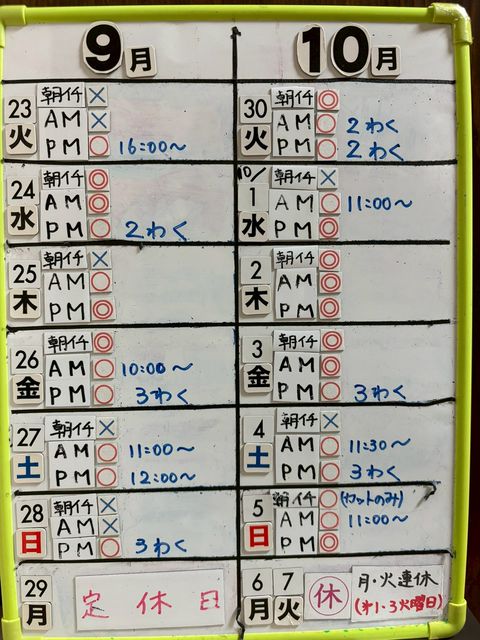 9月
23 火
朝イチ ×
AM ×
PM ○ 16:00~
24 水
朝イチ ◎
AM ◎
PM ○ 2わく
25 木
朝イチ ×
AM ○
PM ◎
26 金
朝イチ ◎
AM ○ 10:00~
PM ○ 3わく
27 土
朝イチ ×
AM ○ 11:00~
PM ○ 12:00~
28 日
朝イチ ×
AM ×
PM ○ 3わく
29 月
定休日
10月
30 火
朝イチ ◎
AM ○ 2わく
PM ○ 2わく
10/1 水
朝イチ ×
AM ○ 11:00~
PM ◎
2 木
朝イチ ◎
AM ◎
PM ◎
3 金
朝イチ ◎
AM ◎
PM ○ 3わく
4 土
朝イチ ×
AM ○ 11:30~
PM ○ 3わく
5 日
朝イチ ○ (カットのみ)
AM ○ 11:00~
PM ◎
6 月 7 火
休
月・火連休
(第1・3火曜日)